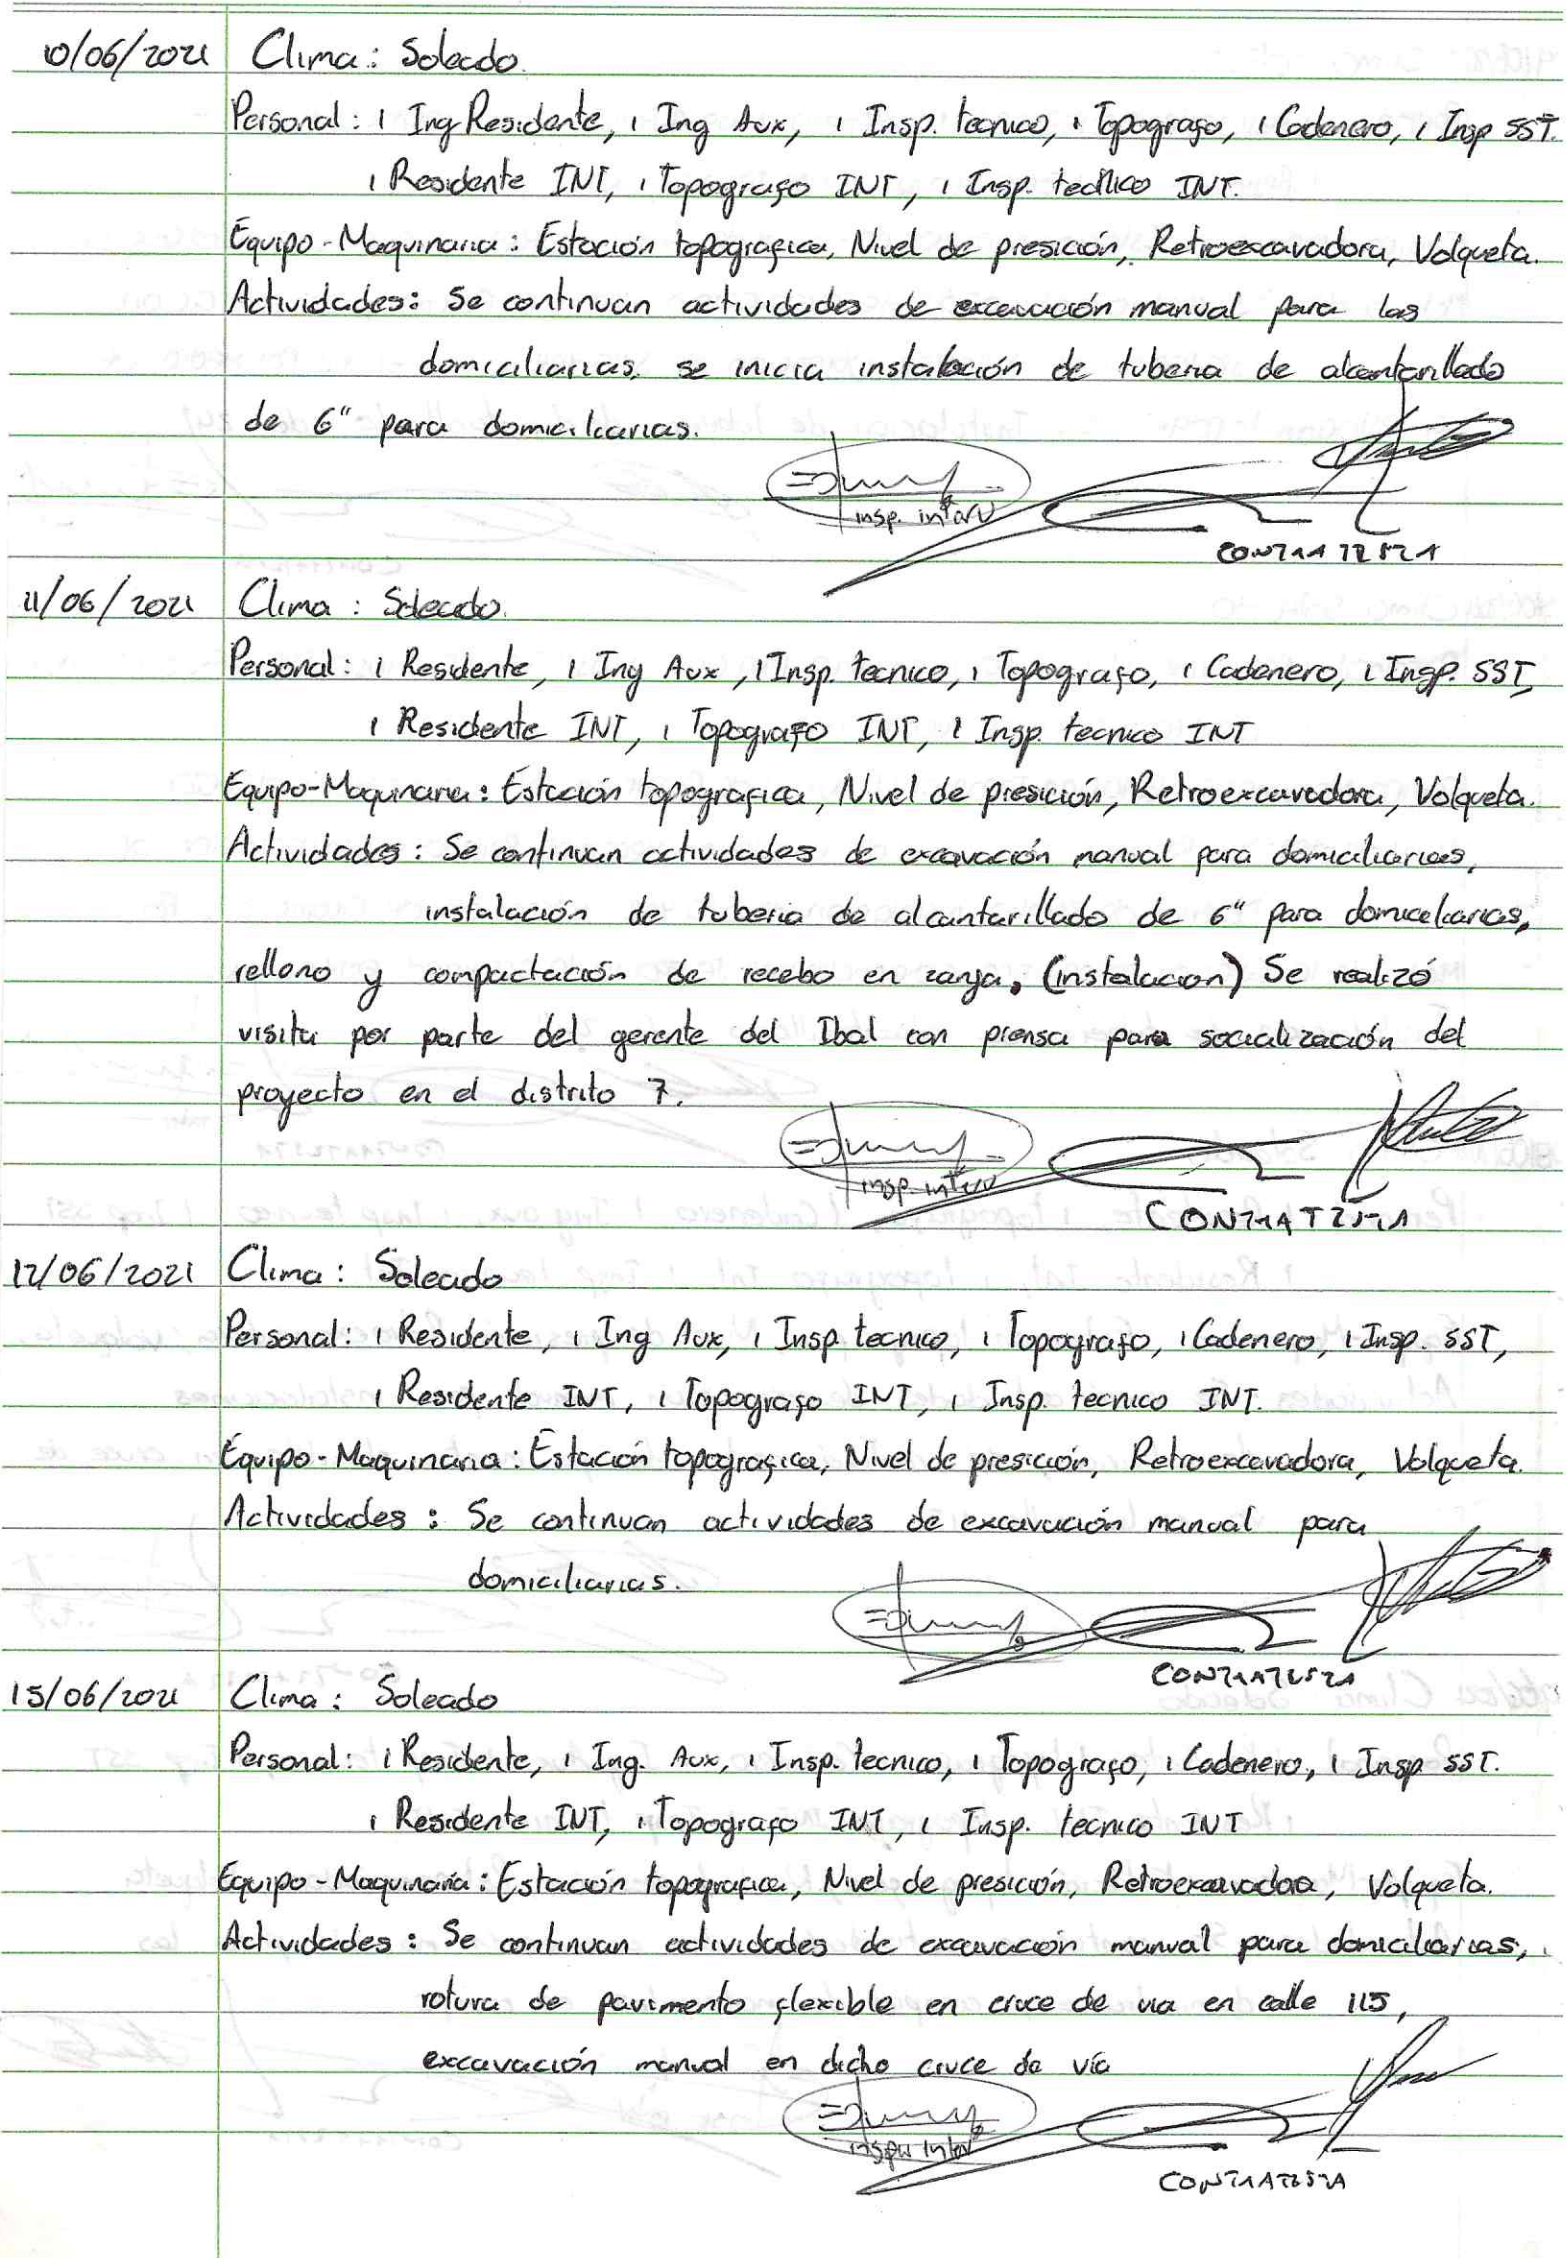 10/06/2021 Clima: Soleado.
Personal: 1 Ing Residente, 1 Ing Aux, 1 Insp. tecnico, 1 Topografo, 1 Cadenero, 1 Insp SST.
1 Residente INT, 1 Topografo INT, 1 Insp. tecnico INT.
Equipo-Maquinaria: Estación topografica, Nivel de presición, Retroexcavadora, Volqueta.
Actividades: Se continuan actividades de excavación manual para las
domiciliarias. se inicia instalación de tuberia de alcantarillado
de 6" para domiciliarias.
insp. interv
CONTRATISTA
11/06/2021 Clima: Soleado.
Personal: 1 Residente, 1 Ing Aux, 1 Insp. tecnico, 1 Topografo, 1 Cadenero, 1 Insp. SST,
1 Residente INT, 1 Topografo INT, 1 Insp. tecnico INT
Equipo-Maquinaria: Estación topografica, Nivel de presición, Retroexcavadora, Volqueta.
Actividades: Se continuan actividades de excavación manual para domiciliarias,
instalación de tuberia de alcantarillado de 6" para domiciliarias,
relleno y compactación de recebo en zanja. (instalacion) Se realizó
visita por parte del gerente del Ibal con prensa para socialización del
proyecto en el distrito 7.
insp. interv
CONTRATISTA
12/06/2021 Clima: Soleado
Personal: 1 Residente, 1 Ing Aux, 1 Insp tecnico, 1 Topografo, 1 Cadenero, 1 Insp. SST,
1 Residente INT, 1 Topografo INT, 1 Insp. tecnico INT.
Equipo-Maquinaria: Estación topografica, Nivel de presición, Retroexcavadora, Volqueta.
Actividades: Se continuan actividades de excavación manual para
domiciliarias.
CONTRATISTA
15/06/2021 Clima: Soleado
Personal: 1 Residente, 1 Ing. Aux, 1 Insp. tecnico, 1 Topografo, 1 Cadenero, 1 Insp SST.
1 Residente INT, 1 Topografo INT, 1 Insp. tecnico INT
Equipo-Maquinaria: Estación topografica, Nivel de presición, Retroexcavadora, Volqueta.
Actividades: Se continuan actividades de excavación manual para domiciliarias,
rotura de pavimento flexible en cruce de via en calle 115,
excavación manual en dicho cruce de vía
CONTRATISTA